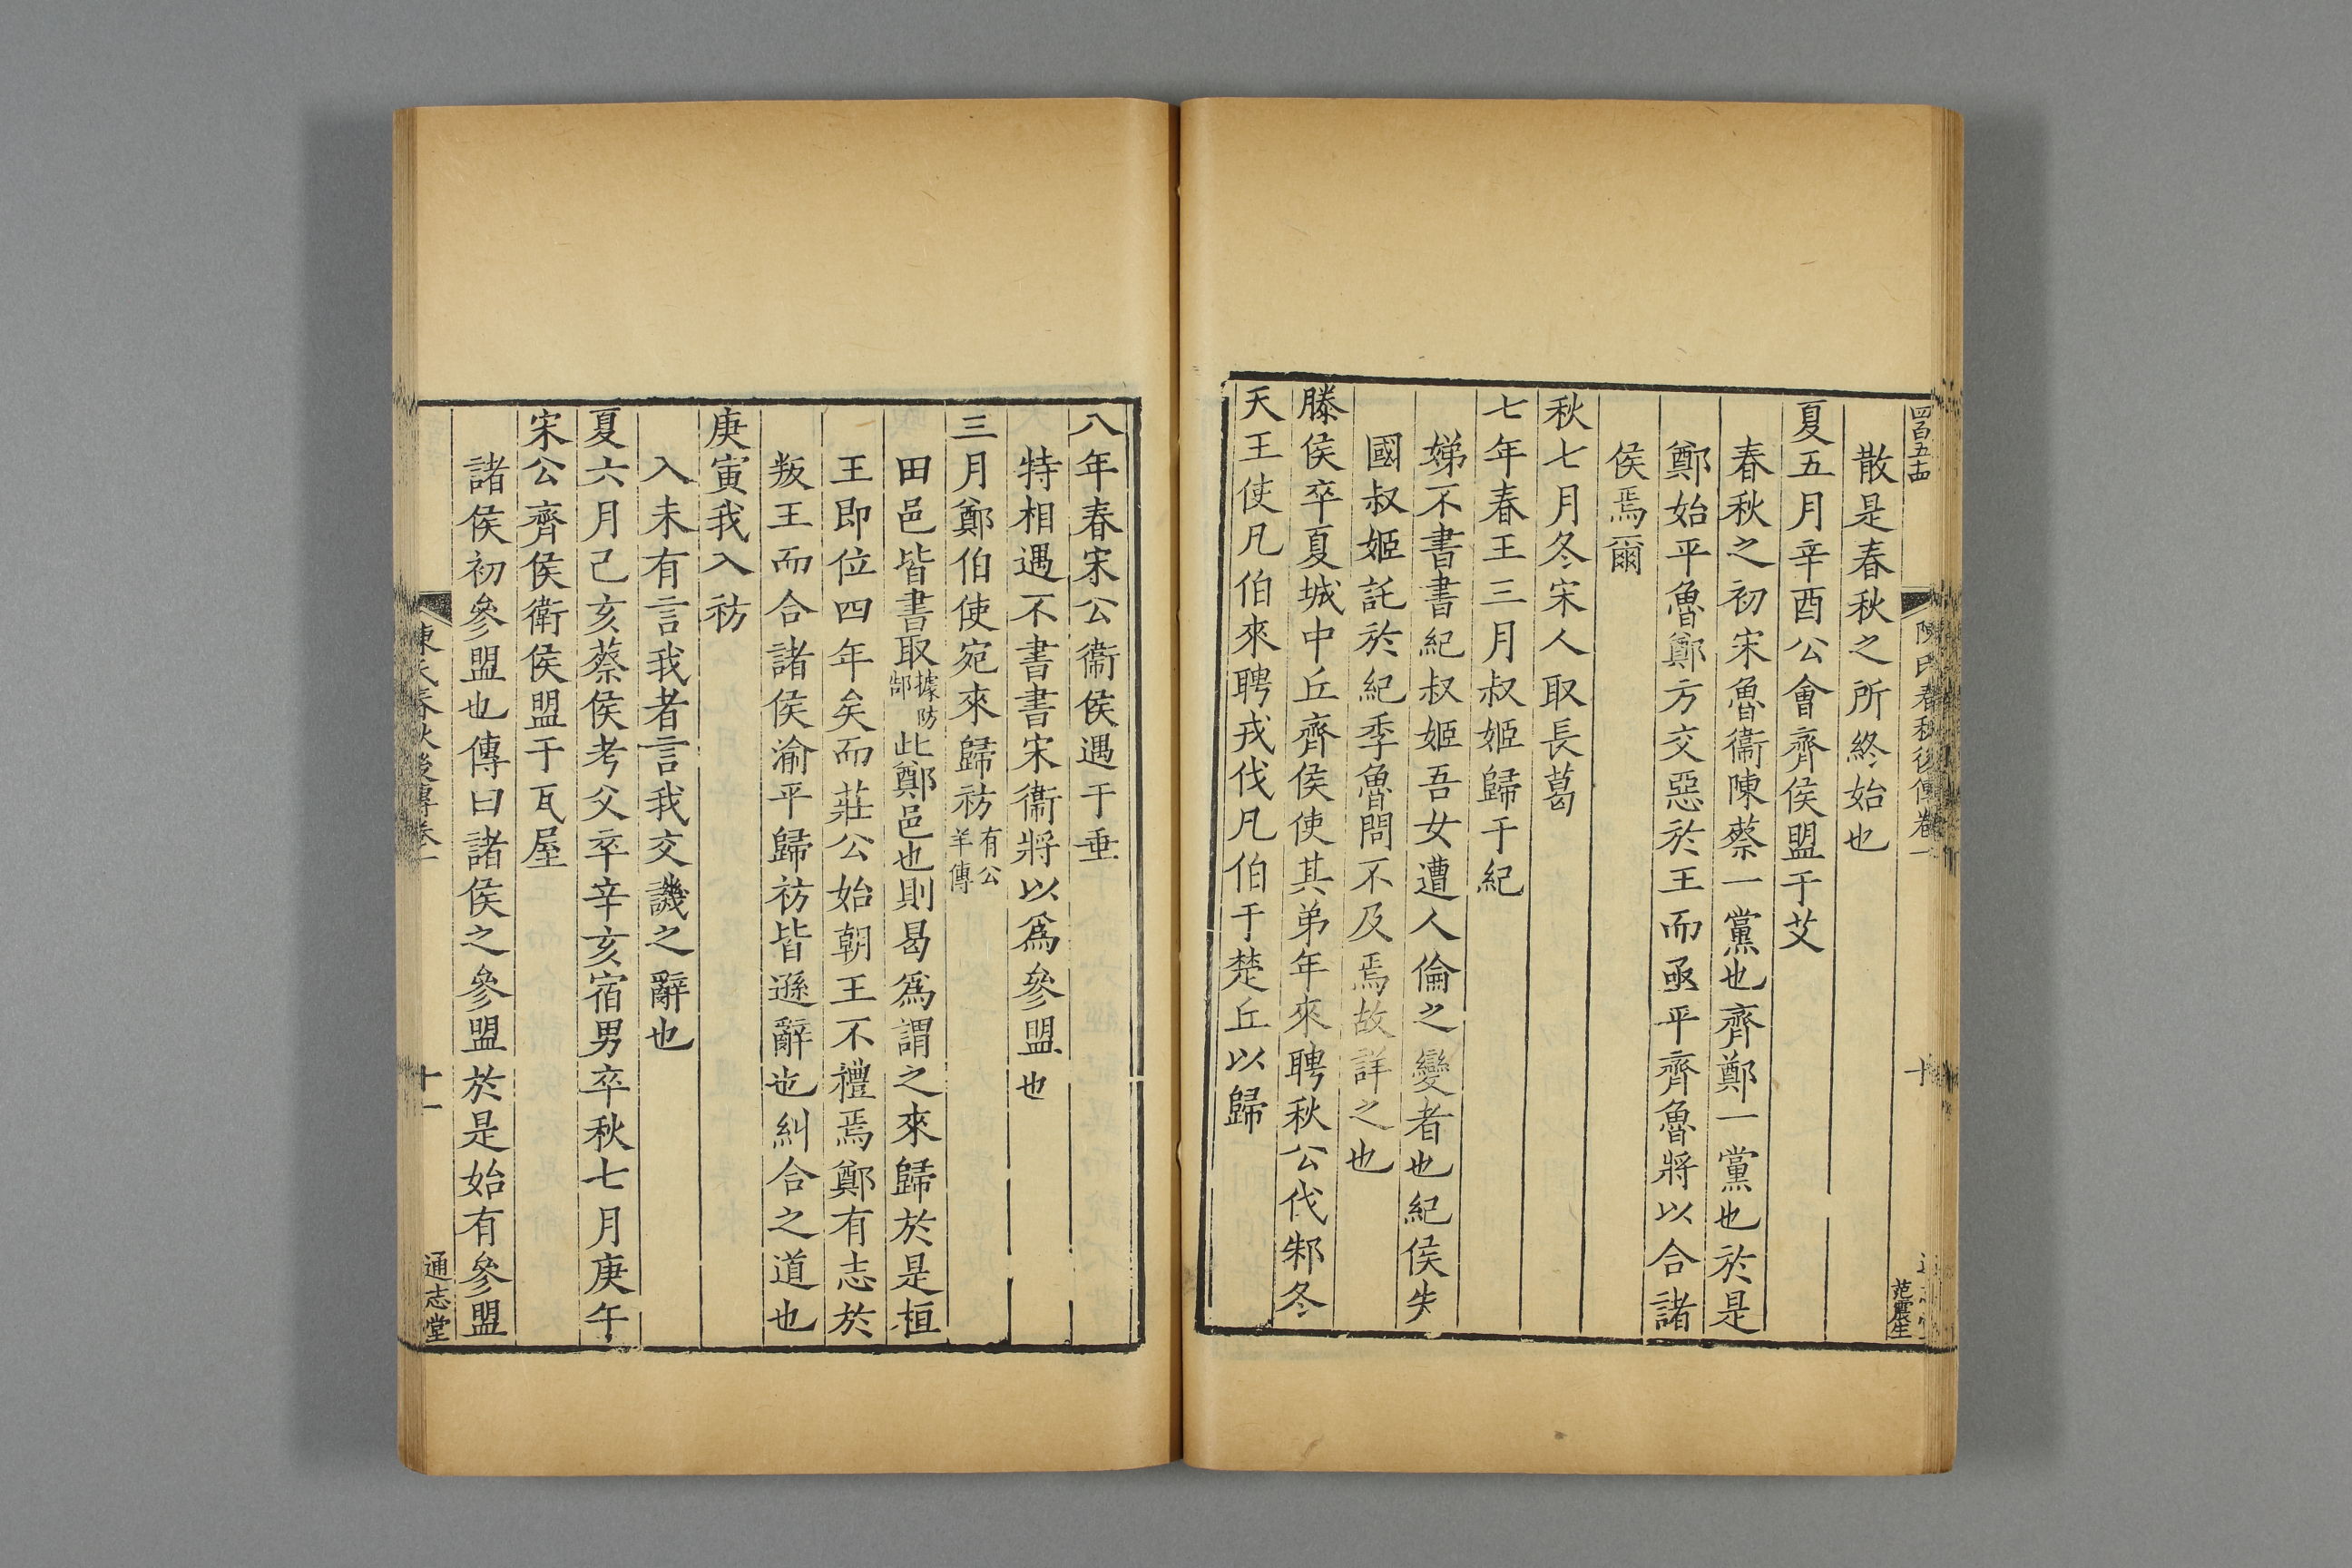 四百五十四
陳氏春秋後傳卷一
十
范震生
散是春秋之所終始也
夏五月辛酉公會齊侯盟于艾
春秋之初宋魯衞陳蔡一黨也齊鄭一黨也於是
鄭始平魯鄭方交惡於王而亟平齊魯將以合諸
侯焉爾
秋七月冬宋人取長葛
七年春王三月叔姬歸于紀
娣不書書紀叔姬吾女遭人倫之變者也紀侯失
國叔姬託於紀季魯問不及焉故詳之也
滕侯卒夏城中丘齊侯使其弟年來聘秋公伐邾冬
天王使凡伯來聘戎伐凡伯于楚丘以歸
八年春宋公衞侯遇于垂
特相遇不書書宋衞將以爲參盟也
三月鄭伯使宛來歸祊有公羊傳
田邑皆書取據防郜此鄭邑也則曷爲謂之來歸於是桓
王即位四年矣而莊公始朝王不禮焉鄭有志於
叛王而合諸侯渝平歸祊皆遜辭也糾合之道也
庚寅我入祊
入未有言我者言我交譏之辭也
夏六月己亥蔡侯考父卒辛亥宿男卒秋七月庚午
宋公齊侯衛侯盟于瓦屋
諸侯初參盟也傳曰諸侯之參盟於是始有參盟
陳氏春秋後傳卷一
十一
通志堂